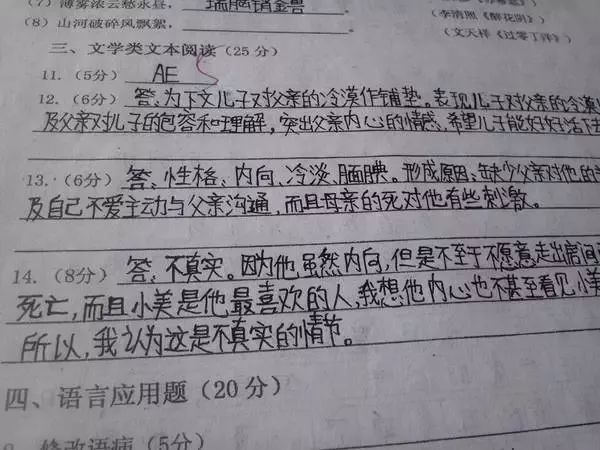 (7) 薄雾浓云愁永昼，瑞脑销金兽
(8) 山河破碎风飘絮， (李清照《醉花阴》)
(文天祥《过零丁洋》)
三、文学类文本阅读(25分)
11. (5分) AE
12. (6分) 答、为下文儿子对父亲的冷漠作铺垫。表现儿子对父亲的冷漠
及父亲对儿子的包容和理解，突出父亲内心的情感，希望儿子能好好活下去
13. (6分) 答、性格、内向、冷淡、腼腆。形成原因、缺少父亲对他的
及自己不爱主动与父亲沟通，而且母亲的死对他有些刺激。
14. (8分) 答、不真实。因为他虽然内向，但是不至于不愿意走出房间
死亡，而且小美是他最喜欢的人，我想他内心也不甚至看见小美
所以，我认为这是不真实的情节。
四、语言应用题(20分)
修改语病(5分)